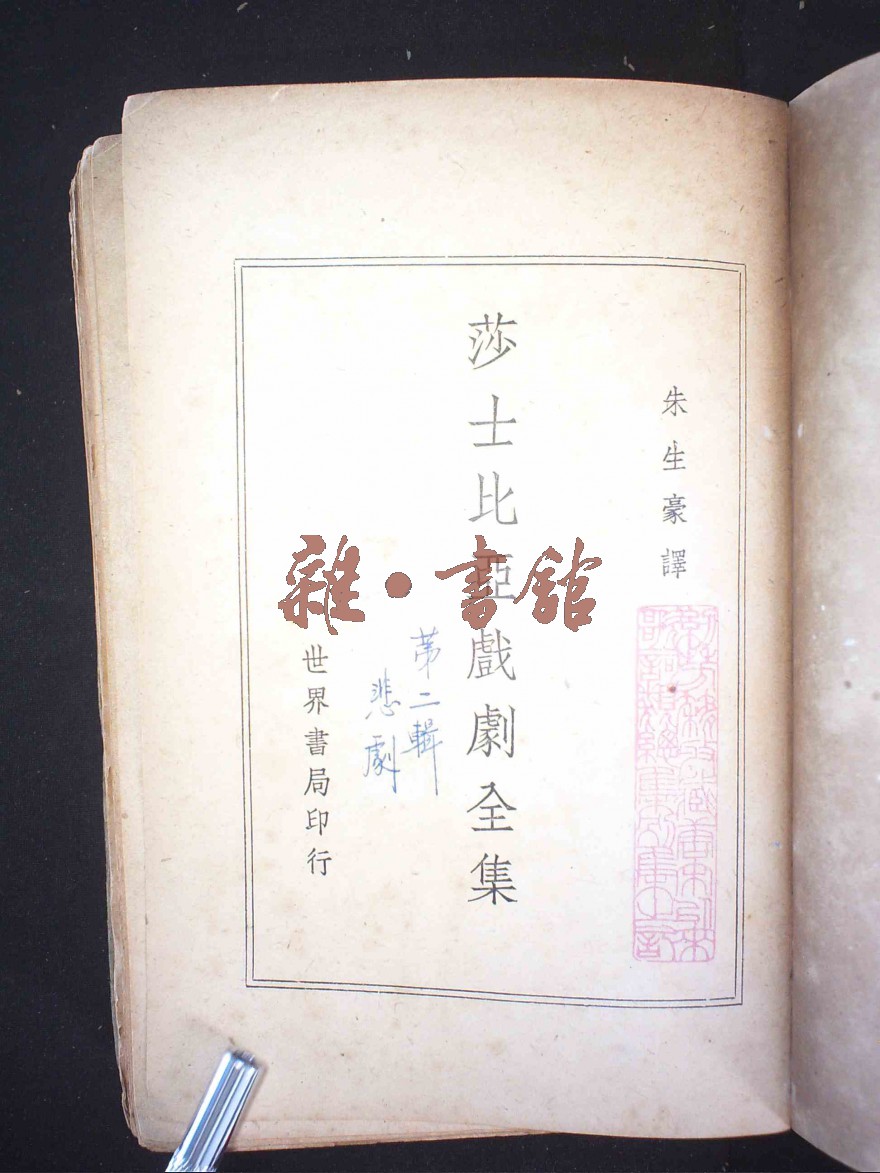 朱生豪譯
莎士比亞戲劇全集
第二輯
悲劇
世界書局印行
雜·書館